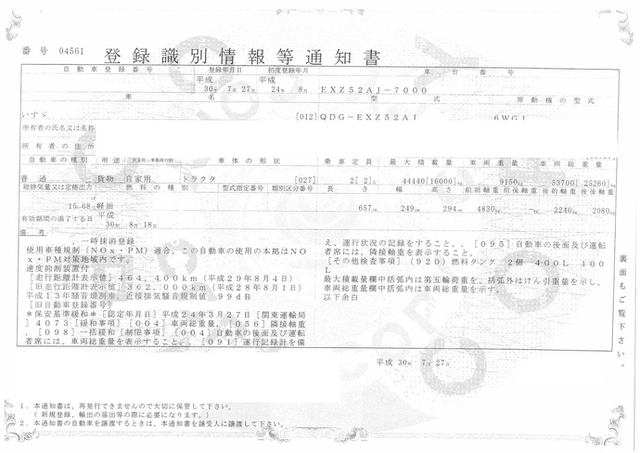 番号 04561
登録識別情報等通知書
自動車登録番号 登録年月日 初度登録年月 車台番号
平成 平成
30年 7月27日 24年 8月 EXZ52AJ-7000
車名 型式 原動機の型式
いすゞ [012] QDG-EXZ52AJ 6WG1
所有者の氏名又は名称
所有者の住所
自動車の種別 用途 自家用・事業用の別 車体の形状 乗車定員 最大積載量 車両重量 車両総重量
普通 貨物 自家用 トラクタ [027] 2[ 2]人 44440[16000]kg 9150kg 53700[ 25260]kg
総排気量又は定格出力 燃料の種別 型式指定番号 類別区分番号 長さ 幅 高さ 前前軸重 前後軸重 後前軸重 後後軸重
15.68L 軽油 657cm 249cm 294cm 4830kg 2240kg 2080kg
有効期間の満了する日
平成
30年 8月18日
備考
一時抹消登録
使用車種規制(NOx・PM)適合、この自動車の使用の本拠はNO
x・PM対策地域内です。
速度抑制装置付
[走行距離計表示値]464,400km(平成29年8月4日)
[旧走行距離計表示値]362,000km(平成28年8月1日)
平成13年騒音規制車、近接排気騒音規制値 99dB
[旧自動車登録番号]
*保安基準緩和*[認定年月日]平成24年3月27日[関東運輸局
]4073[緩和事項][004]車両総重量、[056]隣接軸重
、[098]一括緩和[制限事項][004]自動車の後面及び運転
者席には、車両総重量を表示すること。、[091]運行記録計を備
え、運行状況の記録をすること。、[095]自動車の後面及び運転
者席には、隣接軸重を表示すること。
[その他検査事項](920)燃料タンク 2個 400L 100
L
最大積載量欄中括弧内は第五輪荷重を、括弧外はけん引重量を示し、
車両総重量欄中括弧内は車両総重量を示します。
以下余白
平成 30年 7月27日
裏面もご覧下さい。
1.本通知書は、再発行できませんので大切に保管して下さい。
(新規登録、輸出の届出等の際に必要になります。)
2.本通知書の自動車を譲渡するときは、本通知書を譲受人に譲渡して下さい。